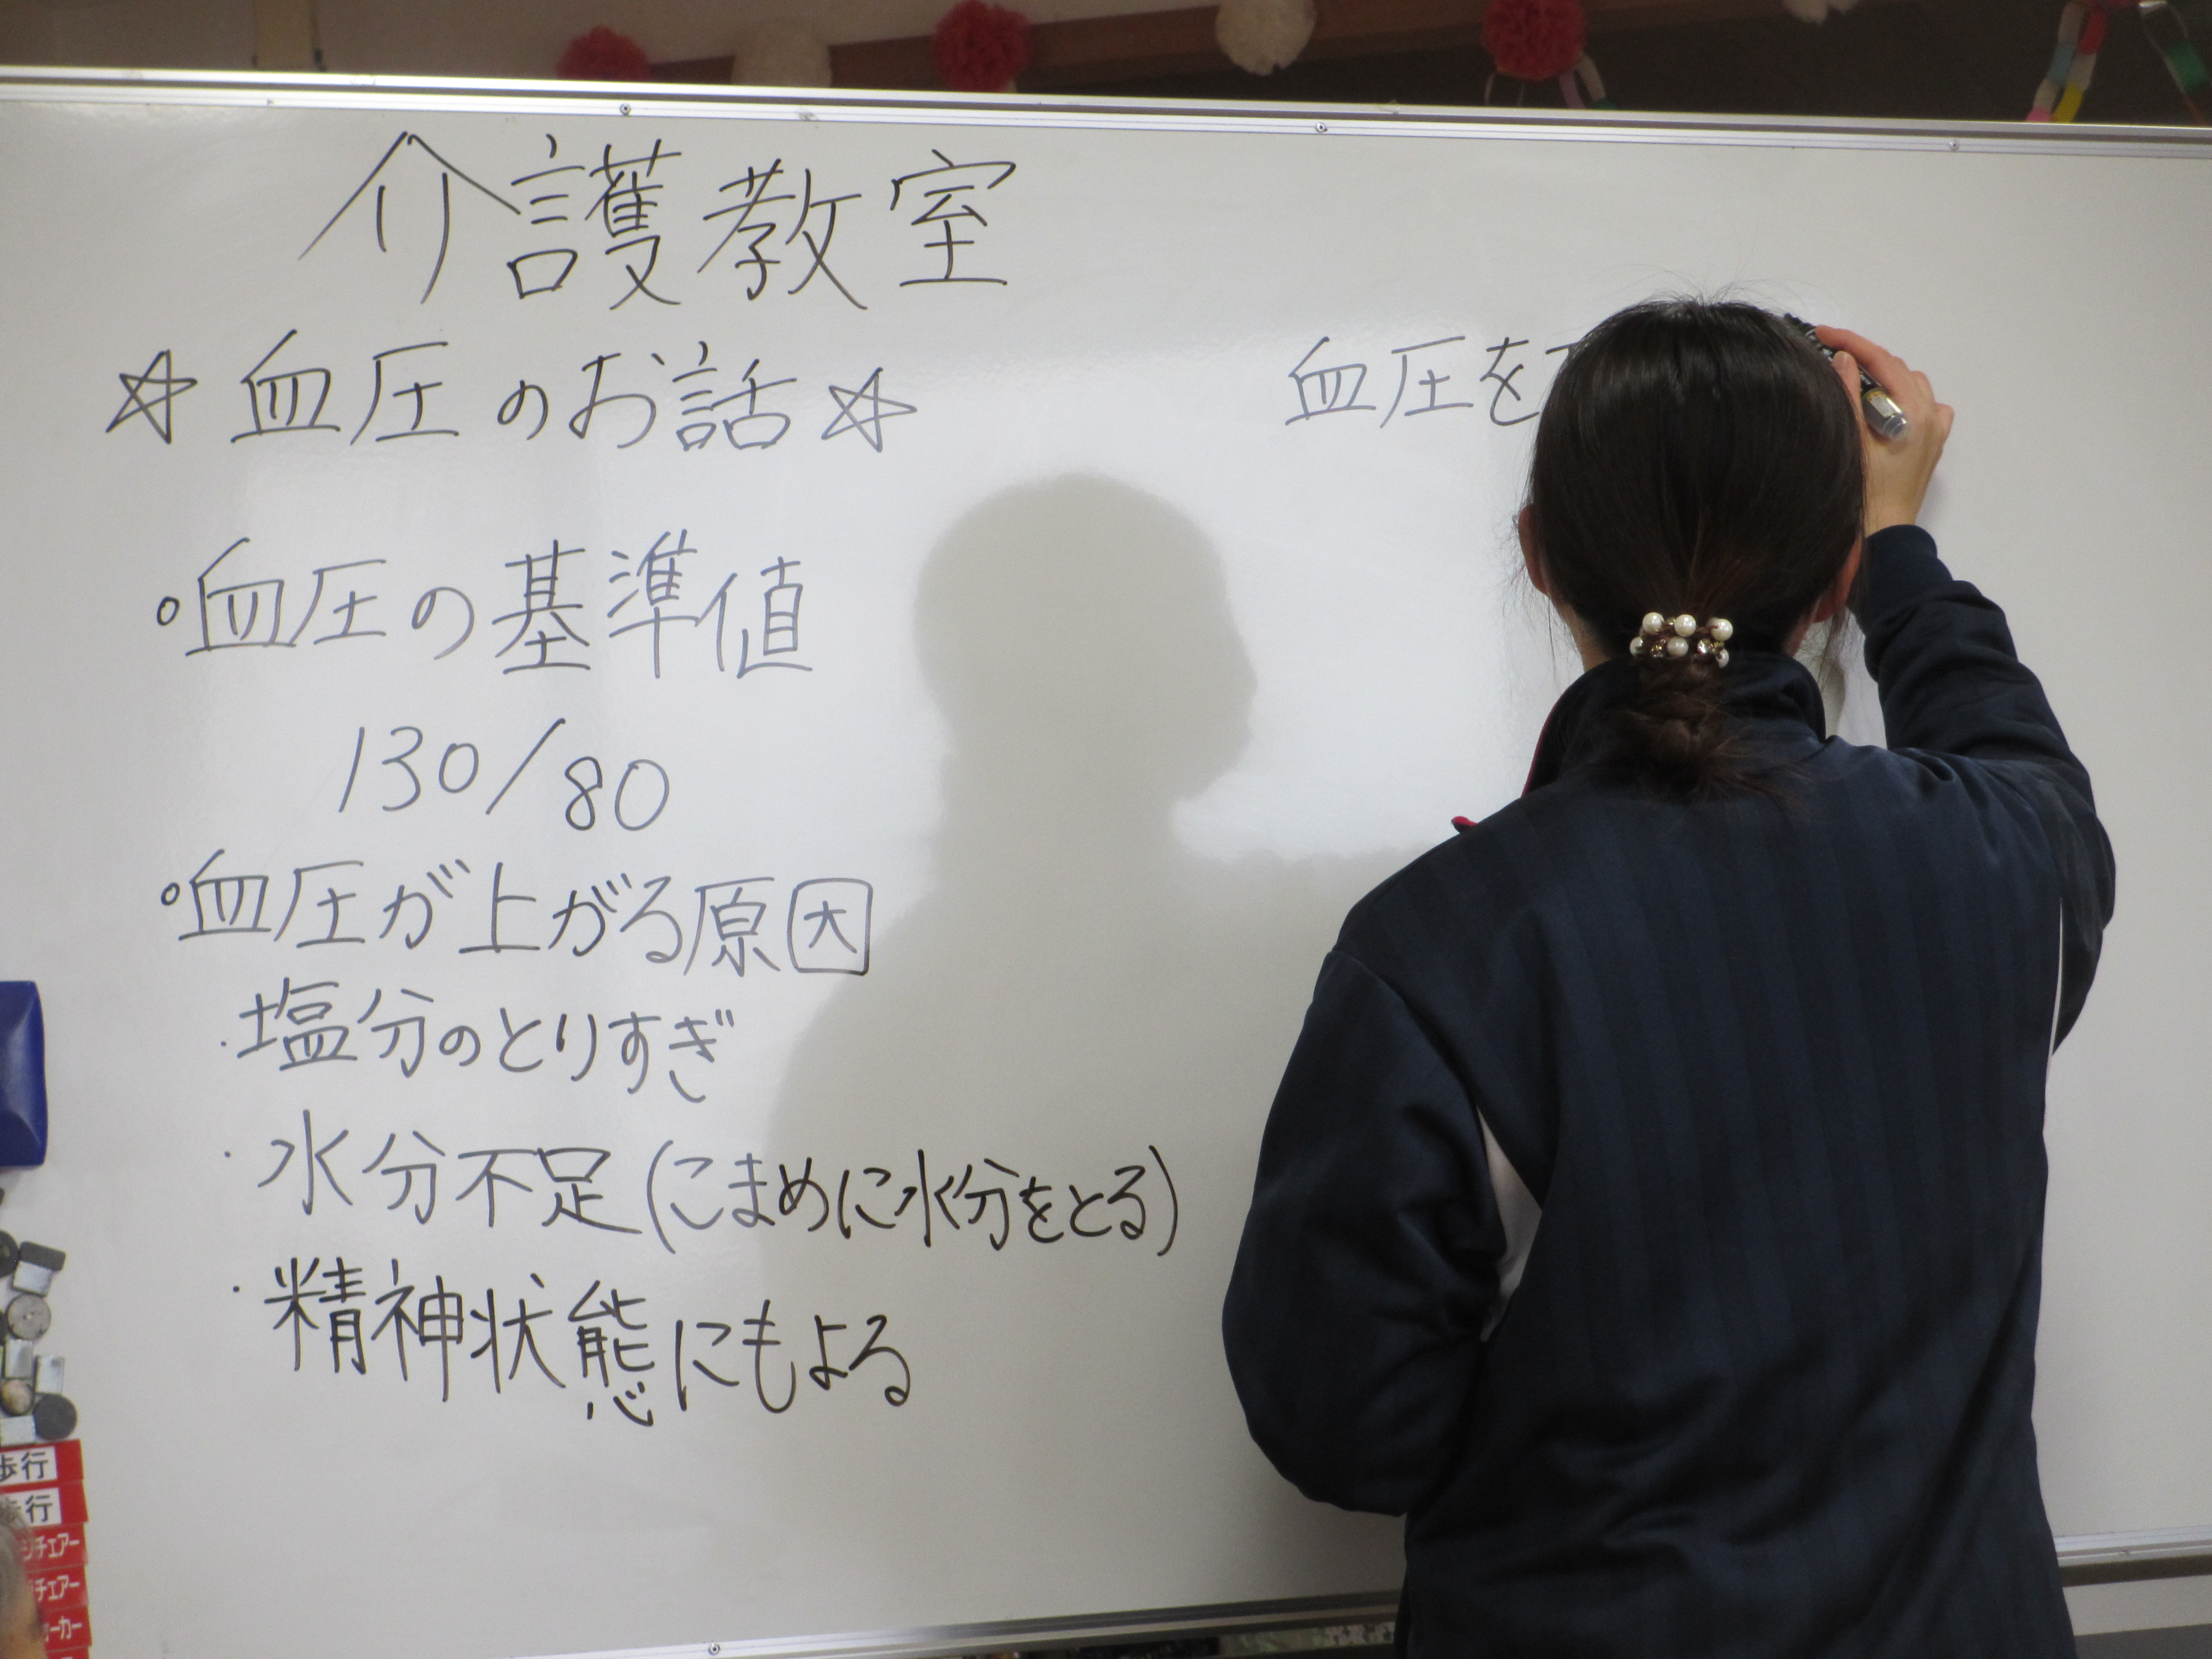 介護教室
☆血圧のお話☆
血圧を
○血圧の基準値
130/80
○血圧が上がる原因
・塩分のとりすぎ
・水分不足(こまめに水分をとる)
・精神状態にもよる
歩行
歩行
チェアー
チェアー
ーカー